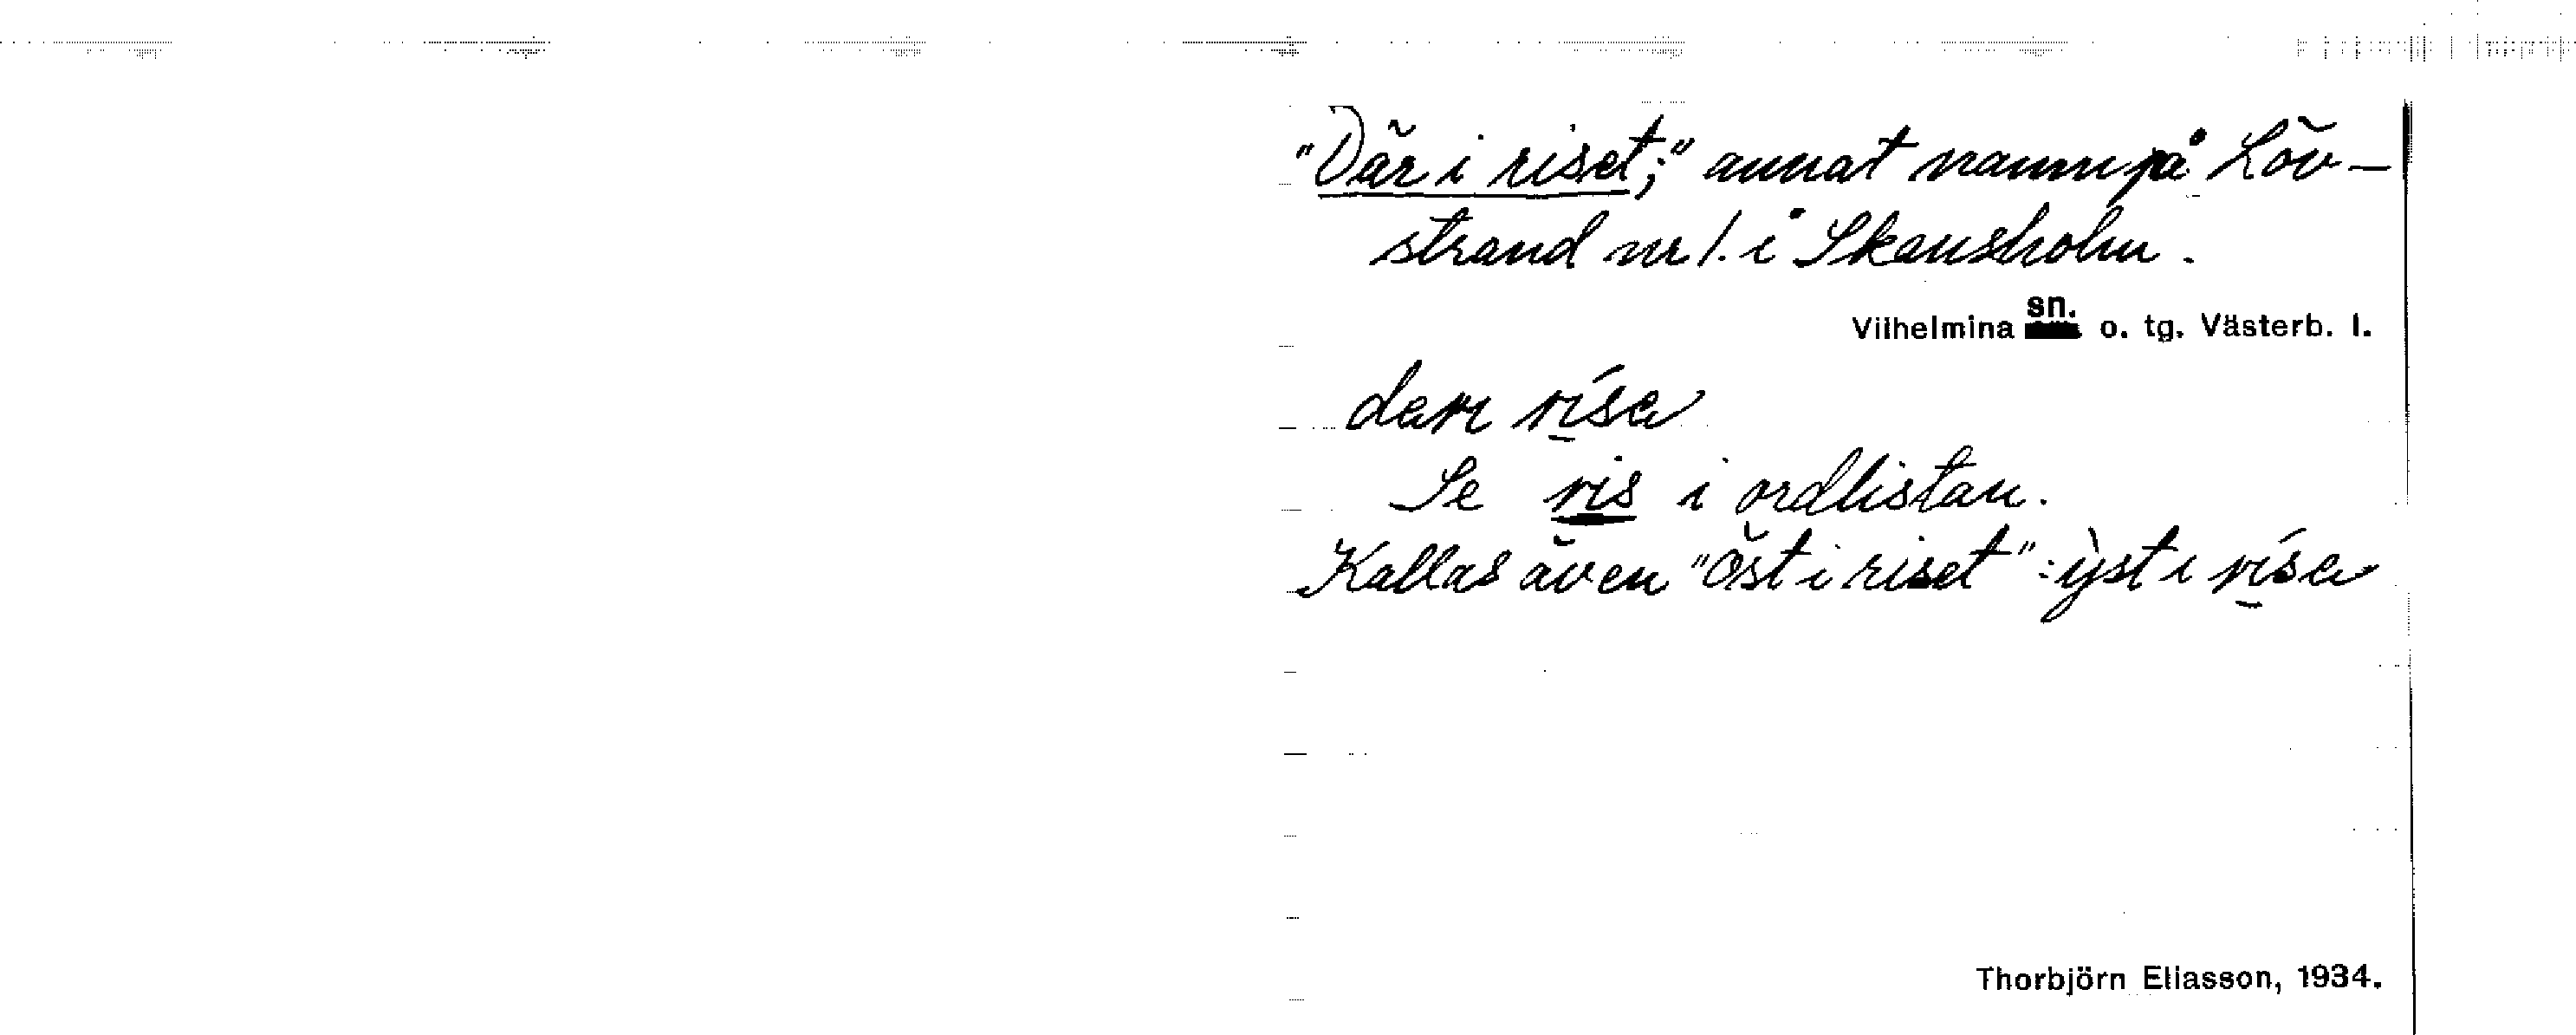 "Där i riset;" annat namn på Löv-
strand nr 1. i Skansholm.
Vilhelmina sn. o. tg. Västerb. l.
dari rísa
Se ris i ordlistan.
Kallas även "Öst i riset": ÿst i rísa
Thorbjörn Eliasson, 1934.